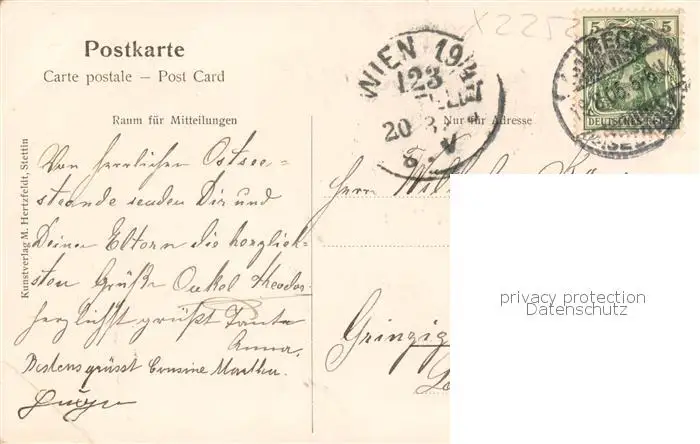 Postkarte
Carte postale – Post Card
Raum für Mitteilungen
Nur für Adresse
X2252
5 5
DEUTSCHES REICH
WIEN 19/4
123
20
8. V
Kunstverlag M. Hertzfeldt, Stettin
Von herrlichen Ostsee-
strande senden Dir und
Deine Eltern die herzlich-
sten Grüße Onkel Theodor
herzlichst grüßt Tante
Anna.
Bestens grüsst Cousine Martha.
Herrn
Grinzig
privacy protection
Datenschutz